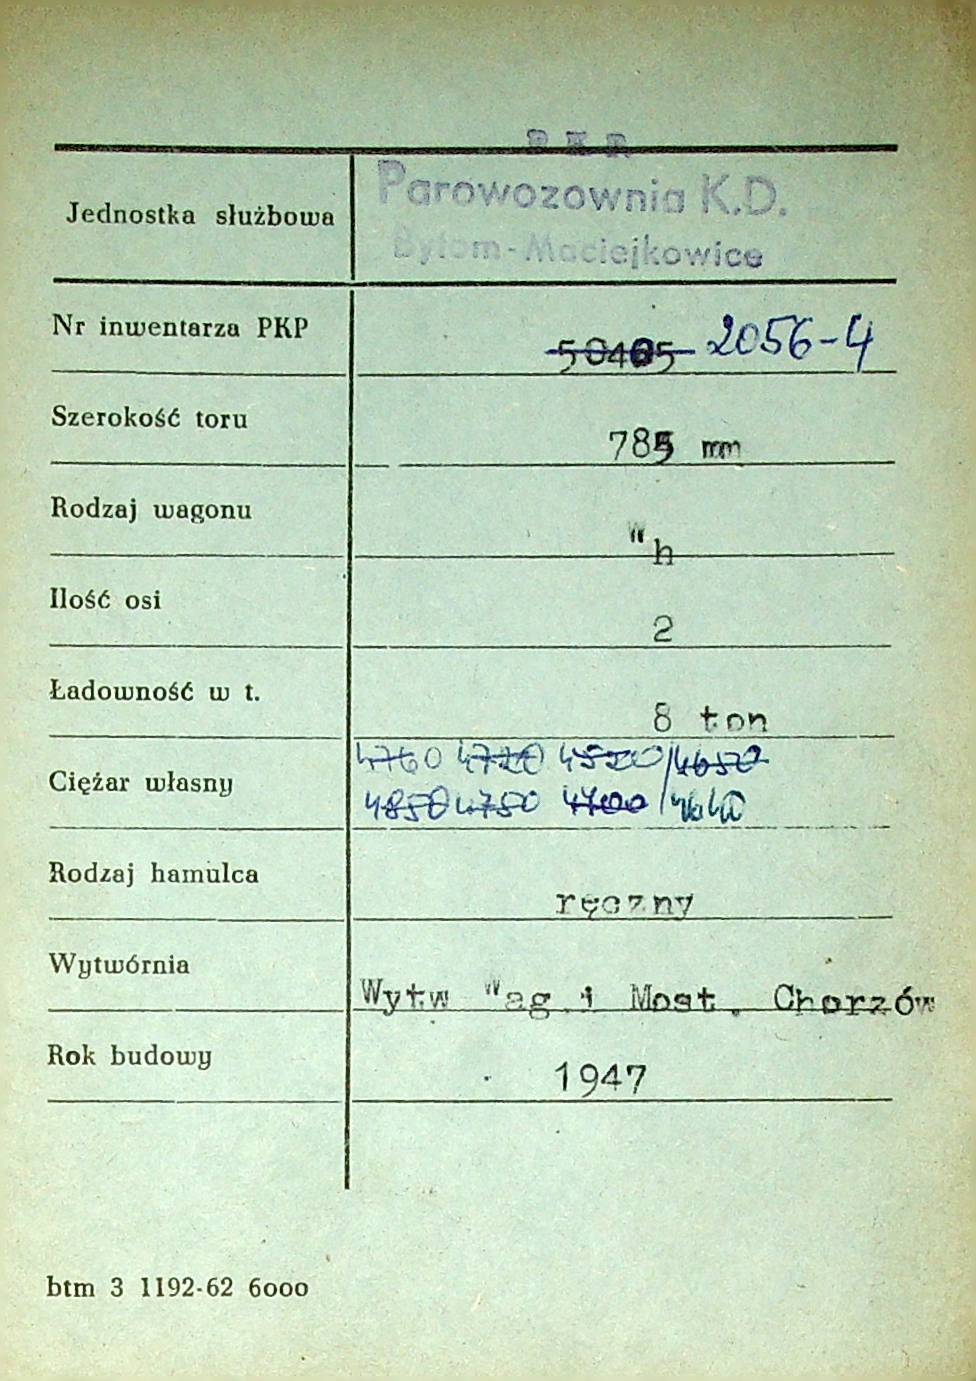 P K P
Jednostka służbowa Parowozownia K.D.
Bytom-Maciejkowice
Nr inwentarza PKP 50465 2056-4
Szerokość toru 785 mm
Rodzaj wagonu Wh
Ilość osi 2
Ładowność w t. 8 ton
4760 4720 4520/4650
Ciężar własny 4850 4750 4700/4640
Rodzaj hamulca ręczny
Wytwórnia Wytw Wag i Most. Chorzów
Rok budowy 1947
btm 3 1192-62 6000